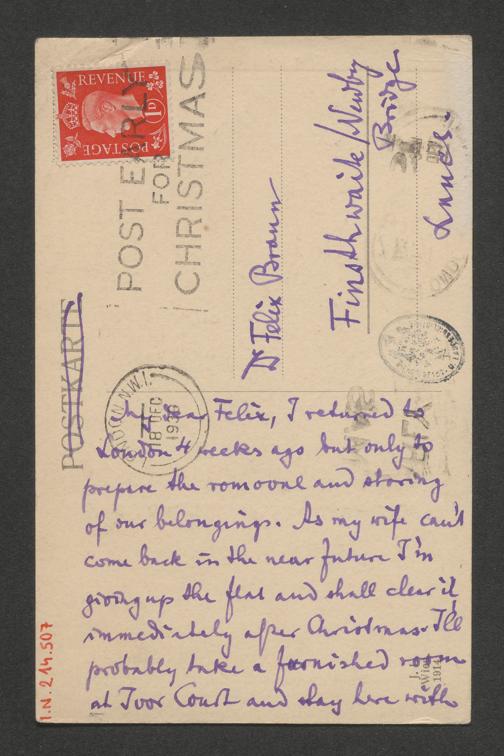 REVENUE
1D
POSTAGE
POST EARLY
FOR
CHRISTMAS
LONDON. N.W.1.
18 DEC
Dr Felix Braun
Finsthwaite/Newby
Bridge
Lancs.
POSTKARTE
My dear Felix, I returned to
London 4 weeks ago but only to
prepare the romoval and storing
of our belongings. As my wife can't
come back in the near future I'm
giving up the flat and shall clear it
immediately after Christmas. I'll
probably take a furnished room
at Ivor Court and stay here with
I.N. 214.507
Wien
1914